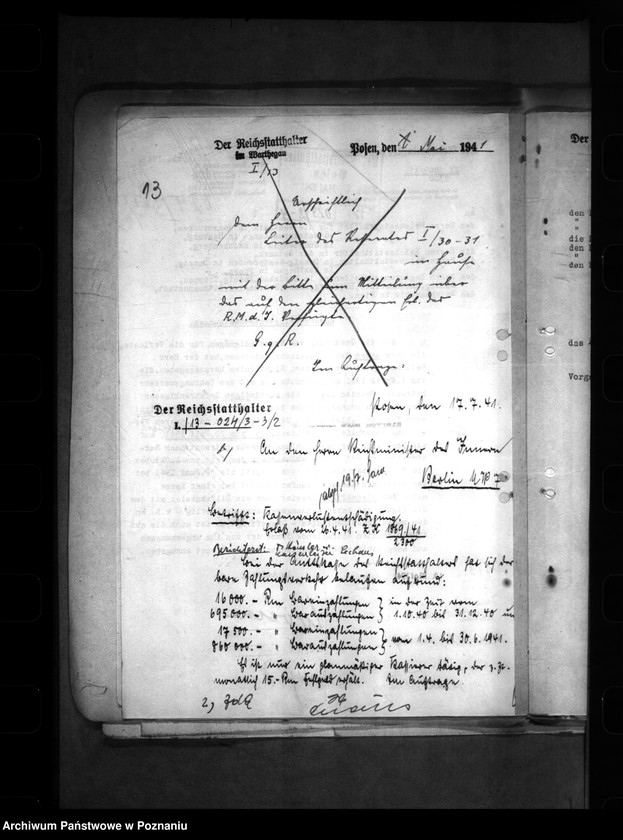 Der Reichsstatthalter
im Warthegau
I/13
Posen, den Mai 1941
13
Abschriftlich
dem Herrn
Leiter des Referates I/30-31
im Hause
mit der Bitte um Mitteilung über
das auf den gleichzeitigen Erl. des
R.M.d.I.
G. g. R.
Im Auftrage:
Der Reichsstatthalter
I./13 - 024/3 - 3/2
Posen, den 17.7.41.
1,/ An den Herrn Reichsminister des Innern
Berlin NW 7
Betrifft: Kassenverlustentschädigung.
Erlaß vom 26.4.41.
2300
Bei der Amtskasse des Reichsstatthalters hat sich der
bare Zahlungsverkehr belaufen auf rund:
16000.- Rm Bareinzahlungen } in der Zeit vom
695000.- " Barauszahlungen } 1.10.40 bis 31.12.40 un
17500.- " Bareinzahlungen }
860000.- " Barauszahlungen } vom 1.4. bis 30.6.1941.
Es ist nur ein planmäßiger Kassierer tätig, der z.Zt.
monatlich 15.- Rm Fehlgeld erhält. Im Auftrage
2, ZdA
Der
den
"
"
die
den
"
den
das
Vorga
Archiwum Państwowe w Poznaniu